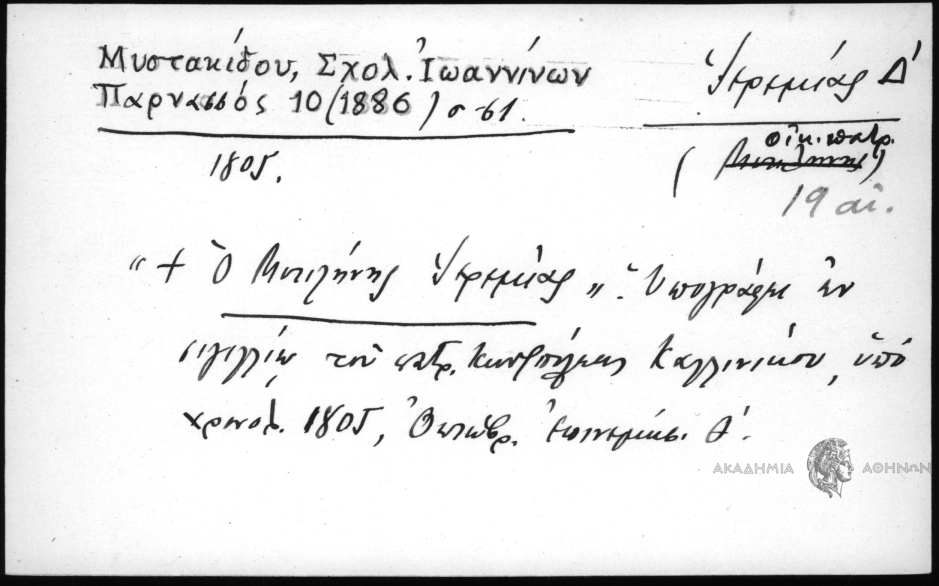 Μυστακίδου, Σχολ. Ἰωαννίνων
Παρνασσός 10 (1886) σ. 61.
Ἱερεμίας Δ'
(Μυτιλήνης) οἰκ. πατρ.
19 αἰ.
1805.
"+ Ὁ Μυτιλήνης Ἱερεμίας". Ὑπογράφει ἐν
σιγιλλίῳ τοῦ πατρ. Κων/πόλεως Καλλινίκου, ὑπὸ
χρονολ. 1805, Ὀκτώβρ. ἐπινεμήσ. Θ'.
ΑΚΑΔΗΜΙΑ ΑΘΗΝΩΝ